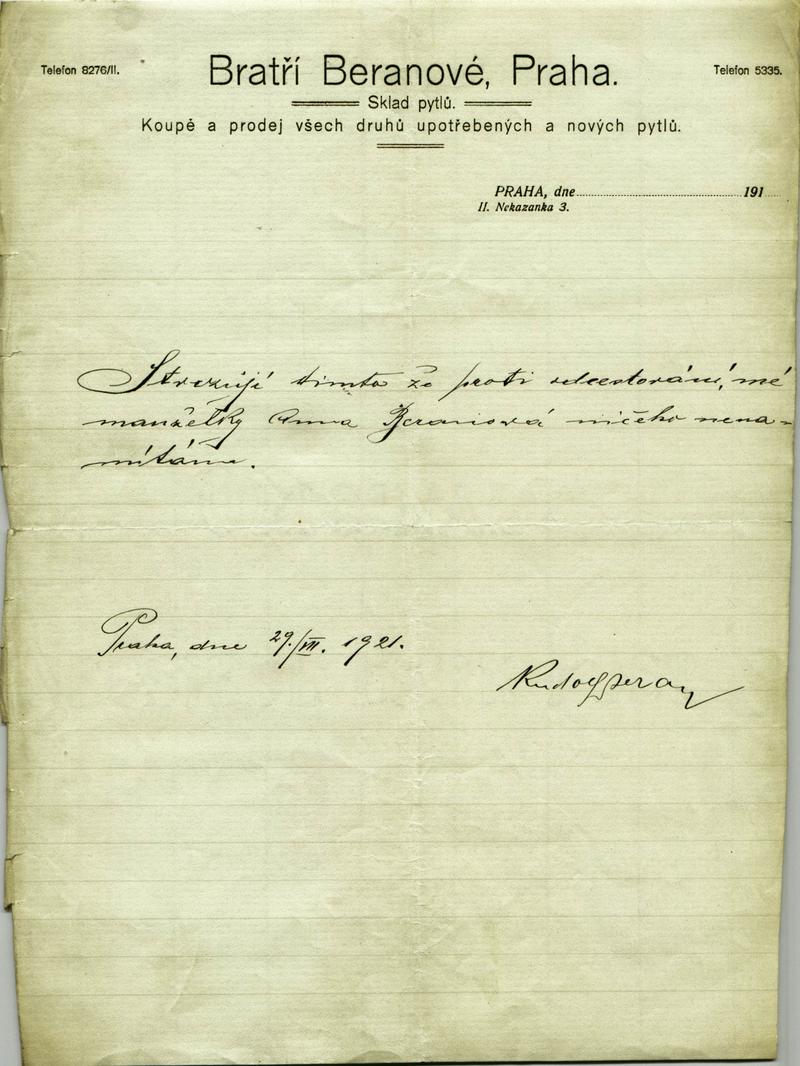 Telefon 8276/II.
Bratří Beranové, Praha.
Telefon 5335.
Sklad pytlů.
Koupě a prodej všech druhů upotřebených a nových pytlů.
PRAHA, dne 191
II. Nekazanka 3.
timto že proti odcestování, mé
manželky Anna Beranová ničeho nena-
mítám.
Praha, dne 29./VII. 1921.
Rudolf Beran